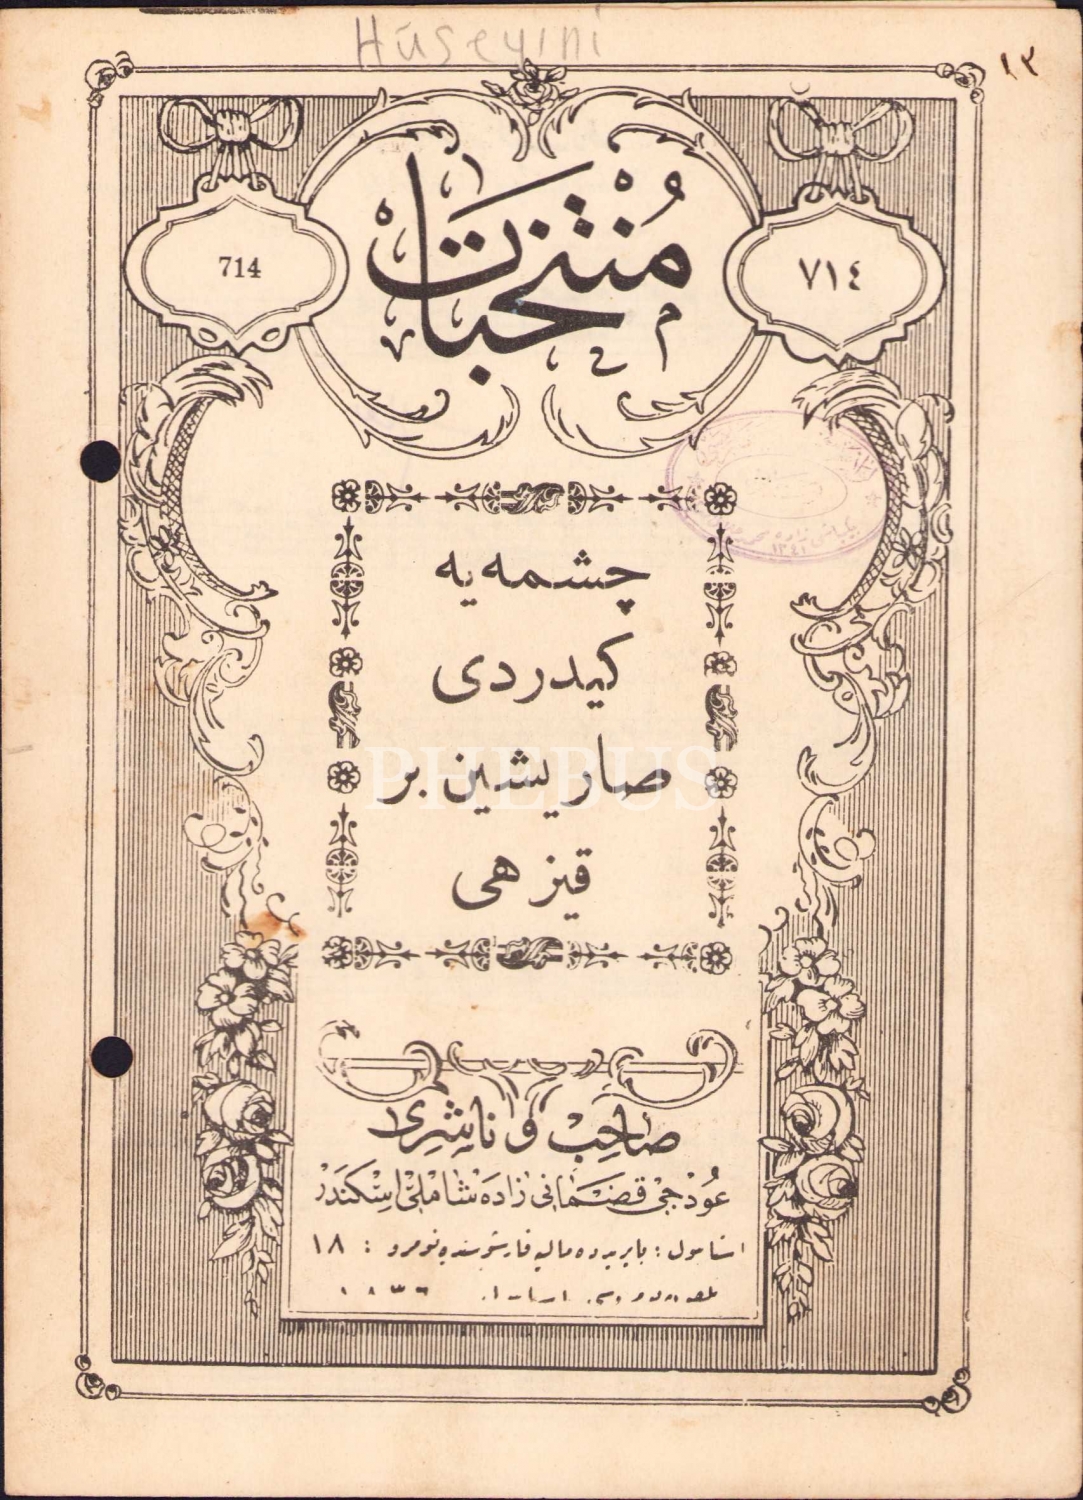 Hüseyıni
١٢
مُنْتخبَات
714
٧١٤
چشمه یه
كیدردی
صاریشین بر
قیز هی
PHEBUS
صاحِب و ناشِری
عُودجی قضمانی زاده شاملی اسكندر
استانبول : بایزیدده مالیه قارشوسنده نومرو : ١٨